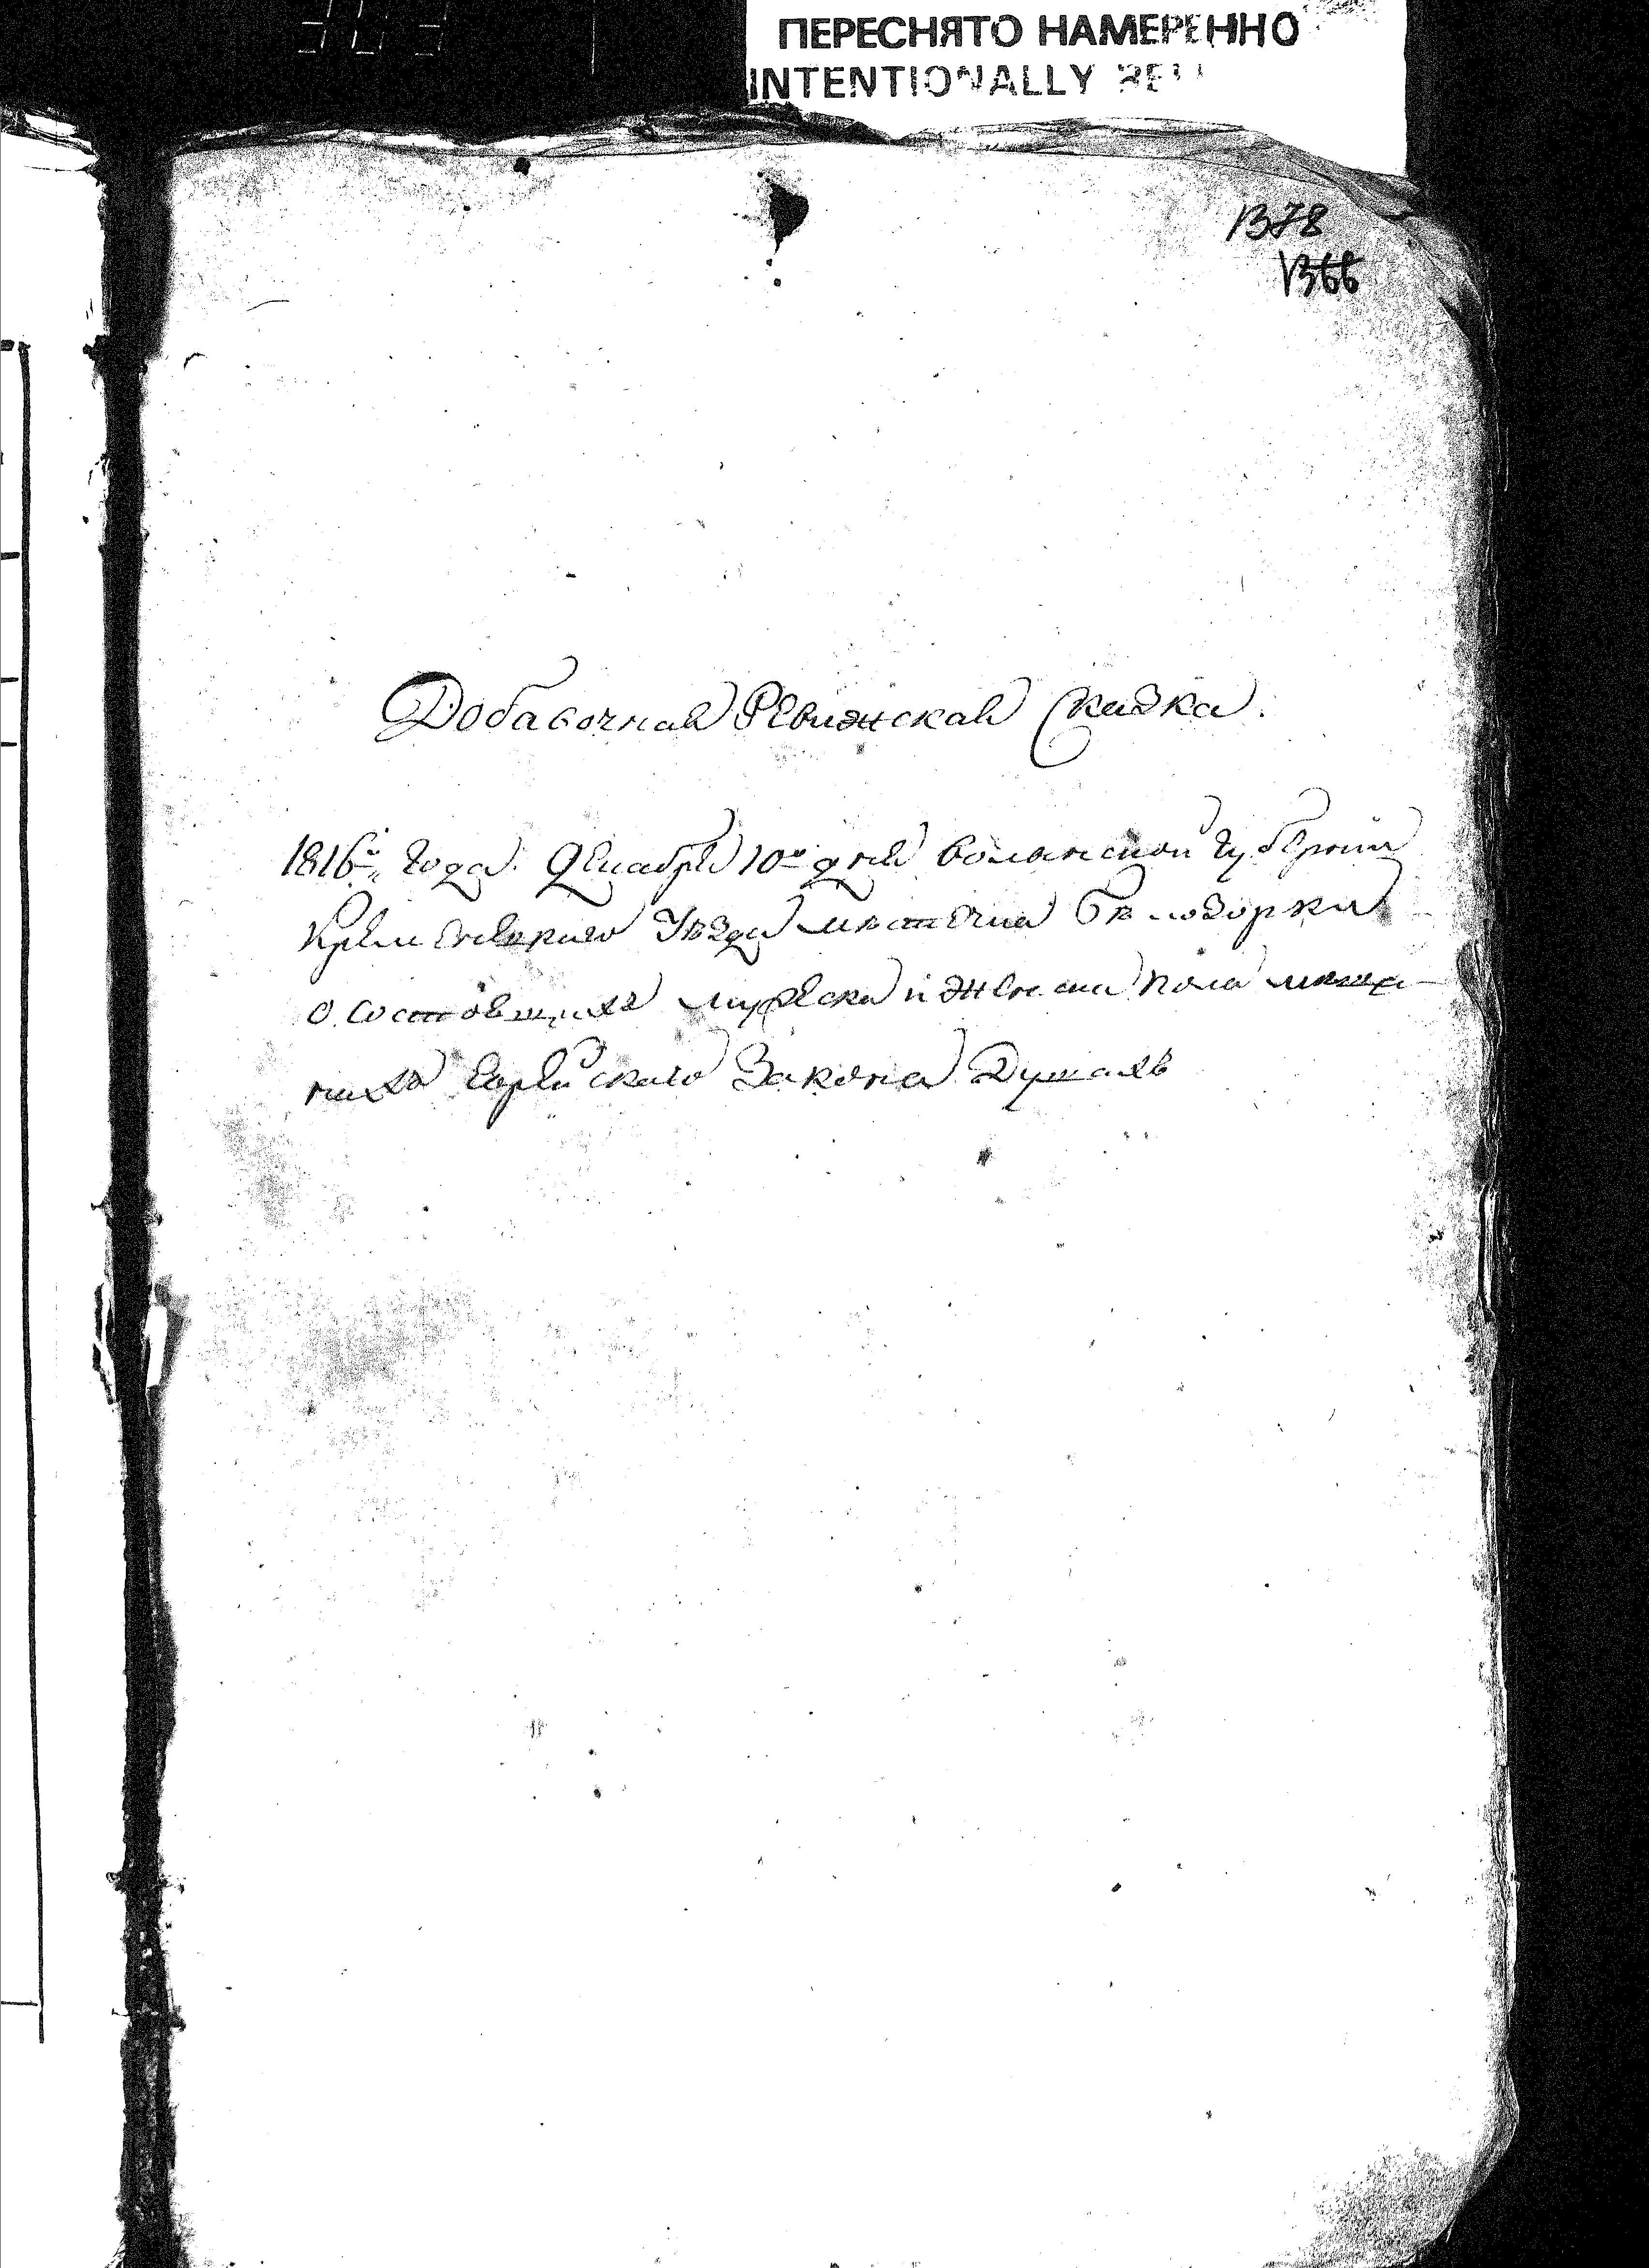 ПЕРЕСНЯТО НАМЕРЕННО
INTENTIONALLY
1378
1366
Добавочная Ревижская Сказка.
1816го года. Декабря 10го дня Волынской губернии
Кременецкаго уѣзда местечка Бѣлозорки
О состоявшихъ мужеска и женска пола меща-
нихъ Еврейскаго Закона Душахъ